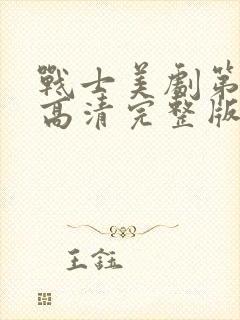 戰士美劇第
高清完整版
王鈺